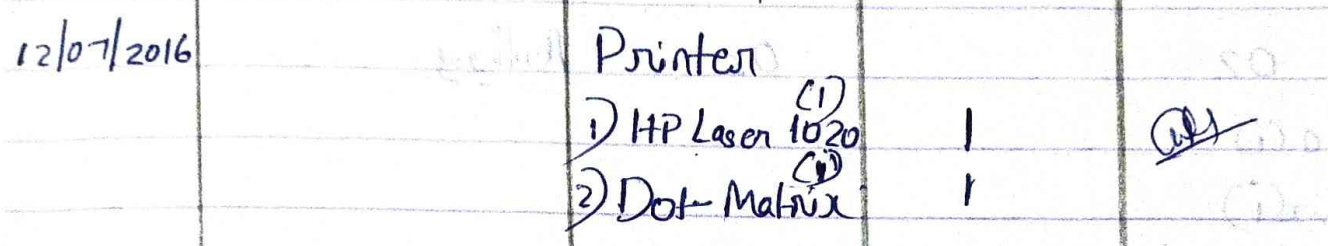 12/07/2016 Printer
(1)
1) HP Laser 1020 1
(1)
2) Dot-Matrix 1